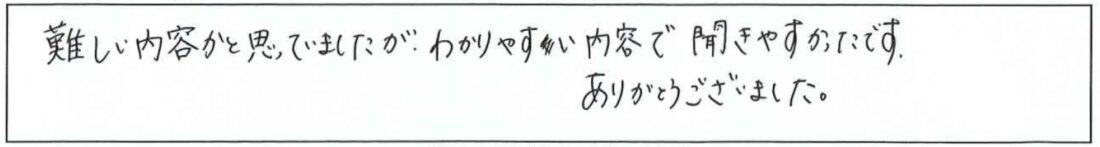 難しい内容かと思っていましたが、わかりやすい内容で聞きやすかったです。
ありがとうございました。